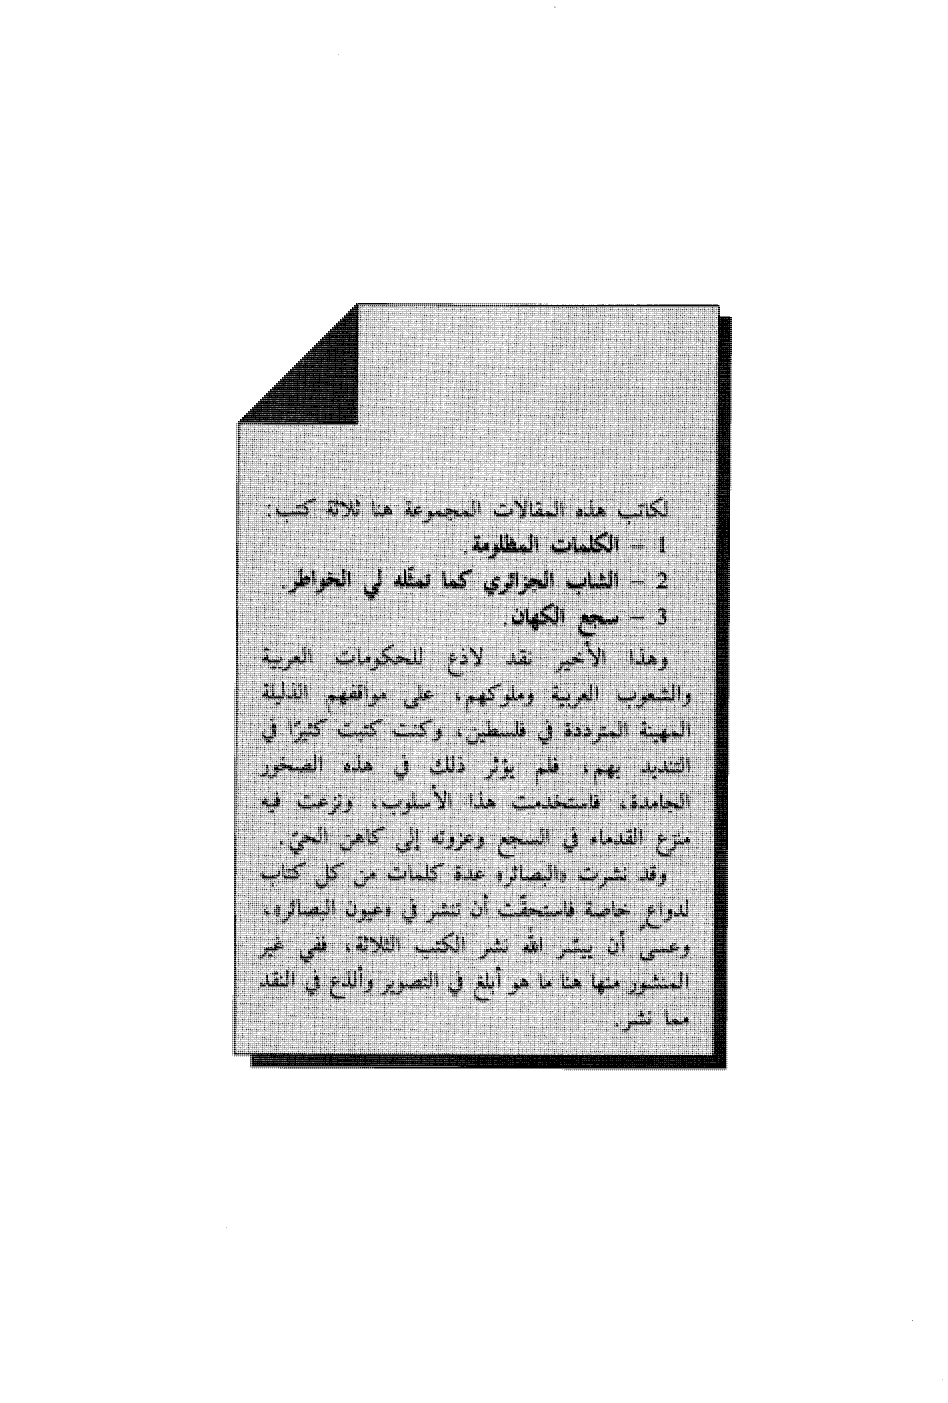 لكاتب هذه المقالات المجموعة هنا ثلاثة كتب:
1 – الكلمات المظلومة.
2 – الشاب الجزائري كما تمثّله لي الخواطر.
3 – سجع الكهان.
وهذا الأخير نقد لاذع للحكومات العربية
والشعوب العربية وملوكهم، على مواقفهم الذليلة
المهينة المترددة في فلسطين، وكنت كتبت كثيرًا في
التنديد بهم، فلم يؤثر ذلك في هذه الصخور
الجامدة، فاستخدمت هذا الأسلوب، ونزعت فيه
منزع القدماء في السجع وعزوته إلى كاهن الحيّ.
وقد نشرت «البصائر» عدة كلمات من كل كتاب
لدواعٍ خاصة فاستحقّت أن تنشر في «عيون البصائر»،
وعسى أن ييسّر الله نشر الكتب الثلاثة، ففي غير
المنشور منها هنا ما هو أبلغ في التصوير وألذع في النقد
مما نشر.